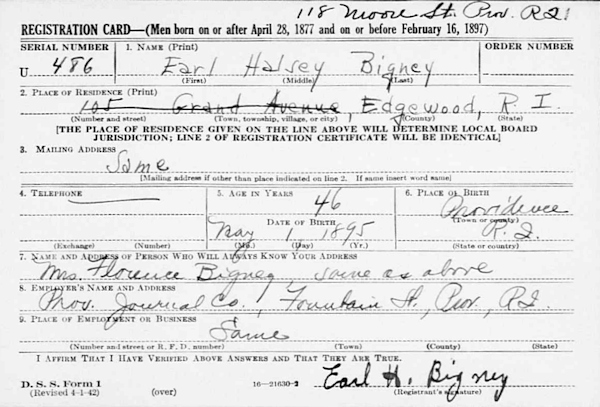 118 Moore St. Prov. R.I.
REGISTRATION CARD—(Men born on or after April 28, 1877 and on or before February 16, 1897)
SERIAL NUMBER 1. NAME (Print) ORDER NUMBER
U 486 Earl Halsey Bigney
(First) (Middle) (Last)
2. PLACE OF RESIDENCE (Print)
105 Grand Avenue, Edgewood, R. I.
(Number and street) (Town, township, village, or city) (County) (State)
[THE PLACE OF RESIDENCE GIVEN ON THE LINE ABOVE WILL DETERMINE LOCAL BOARD
JURISDICTION; LINE 2 OF REGISTRATION CERTIFICATE WILL BE IDENTICAL]
3. MAILING ADDRESS
Same
[Mailing address if other than place indicated on line 2. If same insert word same]
4. TELEPHONE 5. AGE IN YEARS 6. PLACE OF BIRTH
46 Providence
DATE OF BIRTH (Town or county)
May 1 1895 R.I.
(Exchange) (Number) (Mo.) (Day) (Yr.) (State or country)
7. NAME AND ADDRESS OF PERSON WHO WILL ALWAYS KNOW YOUR ADDRESS
Mrs. Florence Bigney same as above
8. EMPLOYER'S NAME AND ADDRESS
Prov. Journal Co., Fountain St., Prov., R.I.
9. PLACE OF EMPLOYMENT OR BUSINESS
Same
(Number and street or R. F. D. number) (Town) (County) (State)
I AFFIRM THAT I HAVE VERIFIED ABOVE ANSWERS AND THAT THEY ARE TRUE.
D. S. S. Form 1
(Revised 4-1-42) (over) 16—21630-2 Earl H. Bigney
(Registrant's signature)